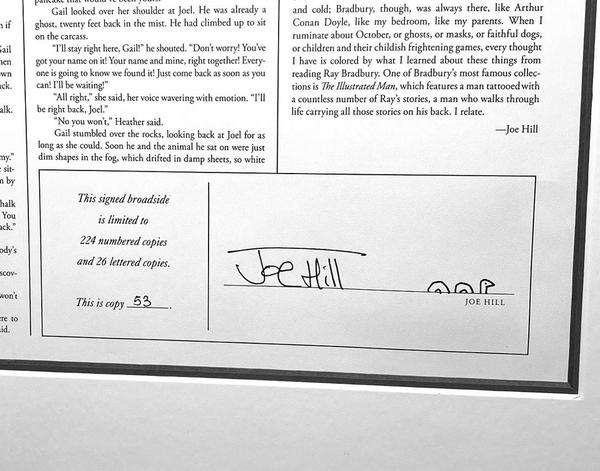 n if
Gail
hen
own
ack.
alk.
my."
e sit-
n by
halk
You
ack."
ody's
scov-
won't
ere to
id.
pancake that would've been yours.
Gail looked over her shoulder at Joel. He was already a
ghost, twenty feet back in the mist. He had climbed up to sit
on the carcass.
"I'll stay right here, Gail!" he shouted. "Don't worry! You've
got your name on it! Your name and mine, right together! Every-
one is going to know we found it! Just come back as soon as you
can! I'll be waiting!"
"All right," she said, her voice wavering with emotion. "I'll
be right back, Joel."
"No you won't," Heather said.
Gail stumbled over the rocks, looking back at Joel for as
long as she could. Soon he and the animal he sat on were just
dim shapes in the fog, which drifted in damp sheets, so white
and cold; Bradbury, though, was always there, like Arthur
Conan Doyle, like my bedroom, like my parents. When I
ruminate about October, or ghosts, or masks, or faithful dogs,
or children and their childish frightening games, every thought
I have is colored by what I learned about these things from
reading Ray Bradbury. One of Bradbury's most famous collec-
tions is The Illustrated Man, which features a man tattooed with
a countless number of Ray's stories, a man who walks through
life carrying all those stories on his back. I relate.
—Joe Hill
This signed broadside
is limited to
224 numbered copies
and 26 lettered copies.
This is copy 53.
Joe Hill
JOE HILL